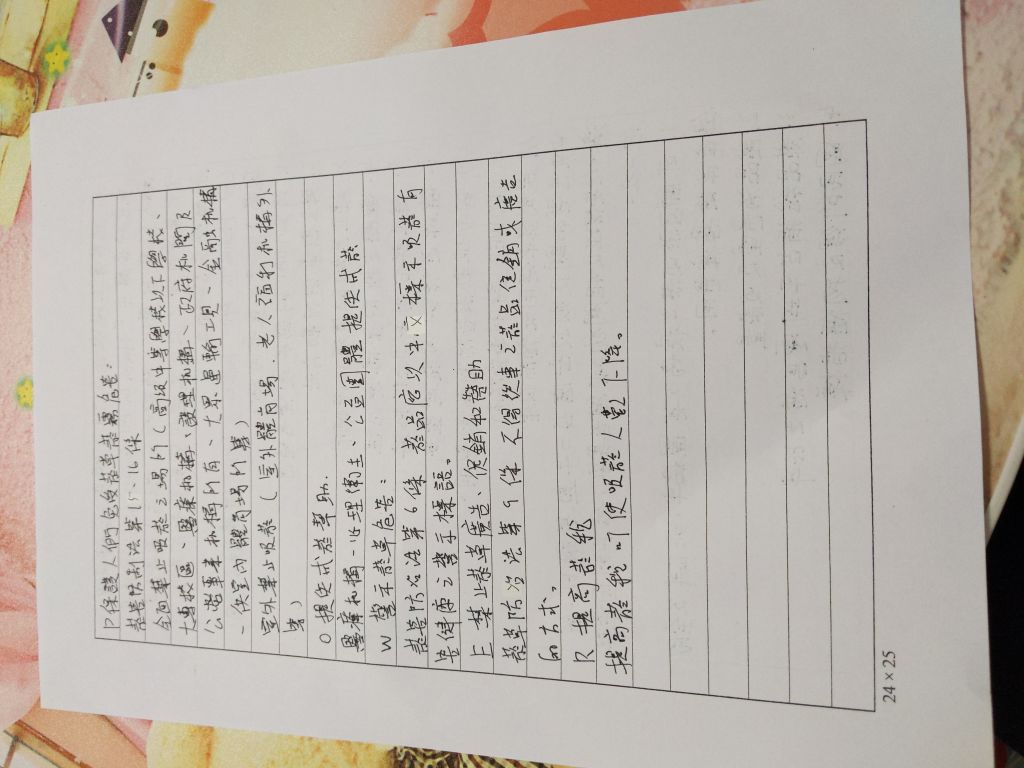 P 保護人們免受菸草煙霧危害：
菸害防制法第15、16條
全面禁止吸菸之場所（高級中等學校以下學校、
大專校區、醫療机構、護理机構、政府机関及
公營事業机構所有、大眾運輸工具、金融机構
、供室內體育場所等）
室外禁止吸菸（室外體育場．老人福利机構外
等）
O 提供戒菸幫助．
醫療机構、心理衛生、公益團體提供戒菸
W 警示菸草危害：
菸害防治法第6條 菸品應以中文標示吸菸有
害健康之警示標語。
E 禁止菸草廣告、促銷和贊助
菸草防治法第9條 不得從事之菸品促銷或廣告
的方式。
R 提高菸稅
提高菸稅可使吸菸人數下降。
24×25